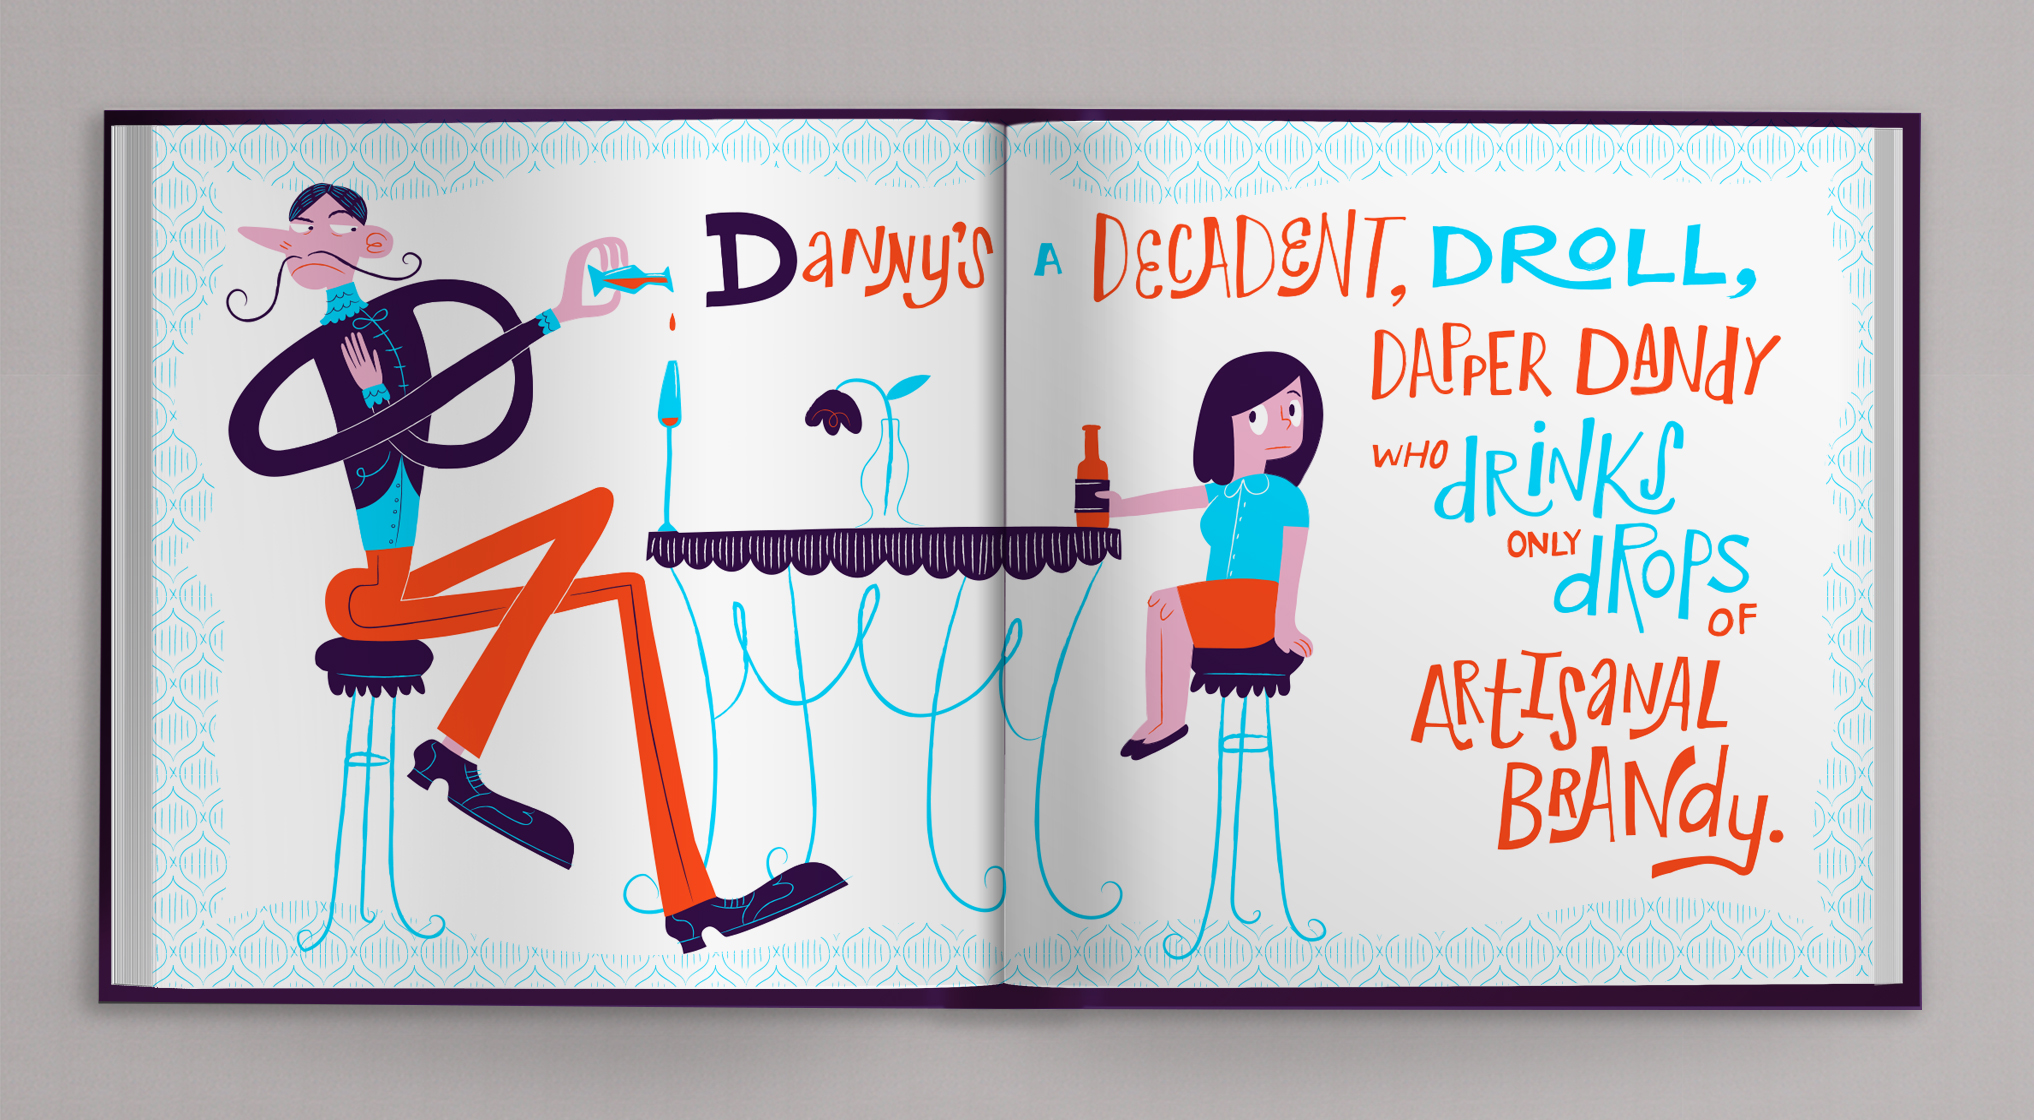 Danny's A DECADENT, DROLL,
DAPPER DANdY
WHO dRiNKS
ONLY dROPS
OF
ARtISaNAL
BRANdy.